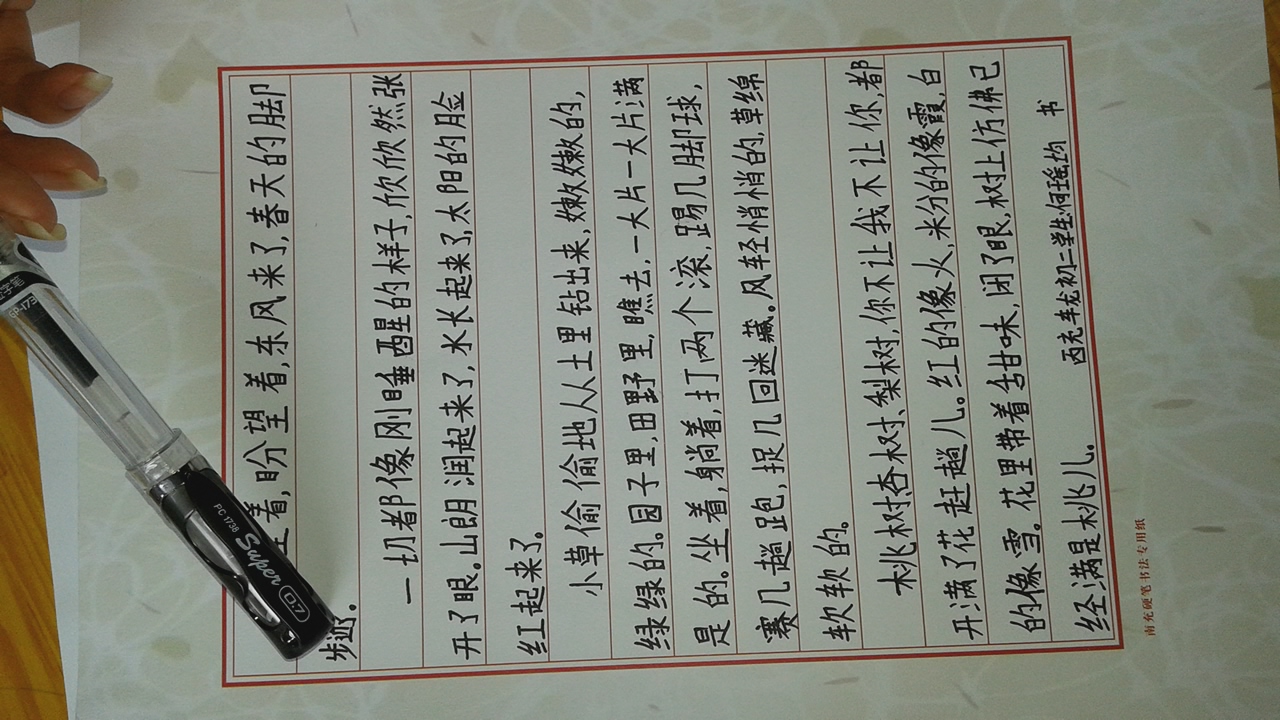 着,盼望着,东风来了,春天的脚
步近了。
一切都像刚睡醒的样子,欣欣然张
开了眼。山朗润起来了,水长起来了,太阳的脸
红起来了。
小草偷偷地从土里钻出来,嫩嫩的,
绿绿的。园子里,田野里,瞧去,一大片一大片满
是的。坐着,躺着,打两个滚,踢几脚球,
赛几趟跑,捉几回迷藏。风轻悄悄的,草绵
软软的。
桃树杏树、梨树,你不让我不让你,都
开满了花赶趟儿。红的像火,粉的像霞,白
的像雪。花里带着甜味,闭了眼,树上仿佛已
经满是桃儿。
西充车龙初二学生:何瑶均 书
南充硬笔书法专用纸
PC 1738 Super 0.7